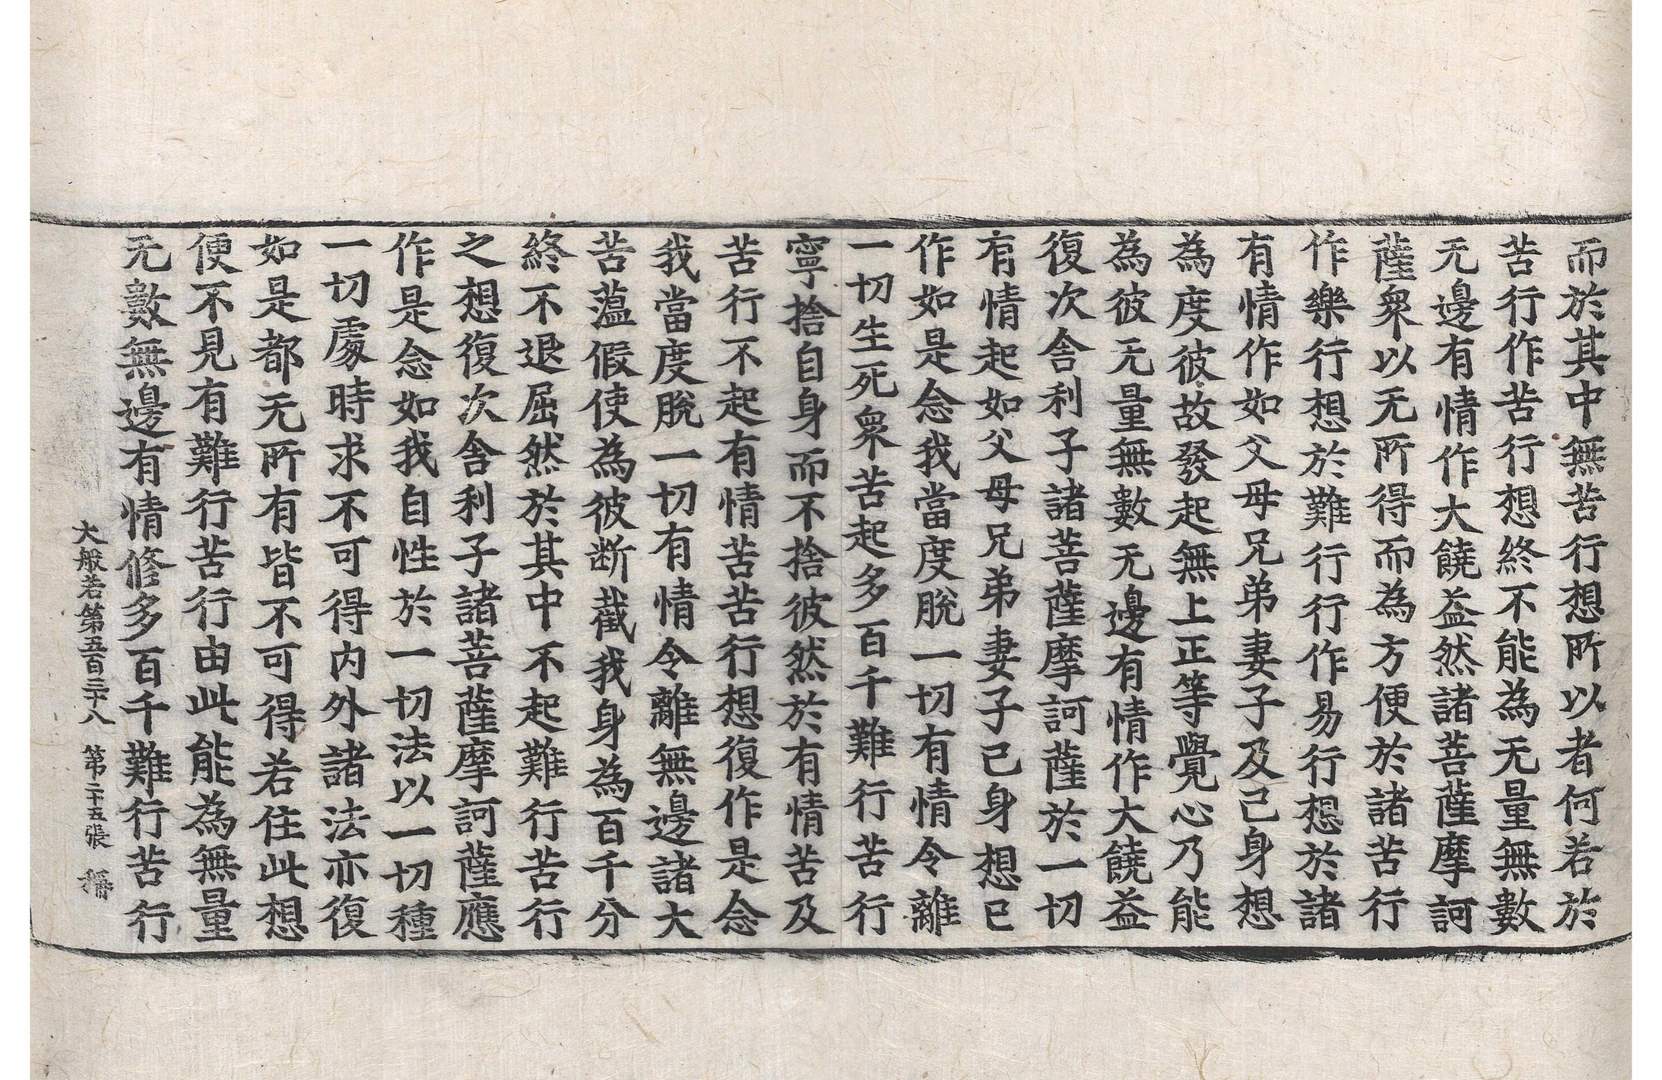 而於其中無苦行想所以者何若於
苦行作苦行想終不能為无量無數
无邊有情作大饒益然諸菩薩摩訶
薩衆以无所得而為方便於諸苦行
作樂行想於難行行作易行想於諸
有情作如父母兄弟妻子及己身想
為度彼故發起無上正等覺心乃能
為彼无量無數无邊有情作大饒益
復次舍利子諸菩薩摩訶薩於一切
有情起如父母兄弟妻子己身想已
作如是念我當度脫一切有情令離
一切生死衆苦起多百千難行苦行
寧捨自身而不捨彼然於有情苦及
苦行不起有情苦苦行想復作是念
我當度脫一切有情令離無邊諸大
苦薀假使為彼断截我身為百千分
終不退屈然於其中不起難行苦行
之想復次舍利子諸菩薩摩訶薩應
作是念如我自性於一切法以一切種
一切處時求不可得内外諸法亦復
如是都无所有皆不可得若住此想
便不見有難行苦行由此能為無量
无數無邊有情修多百千難行苦行
大般若第五百三十八 第二十五張 稱